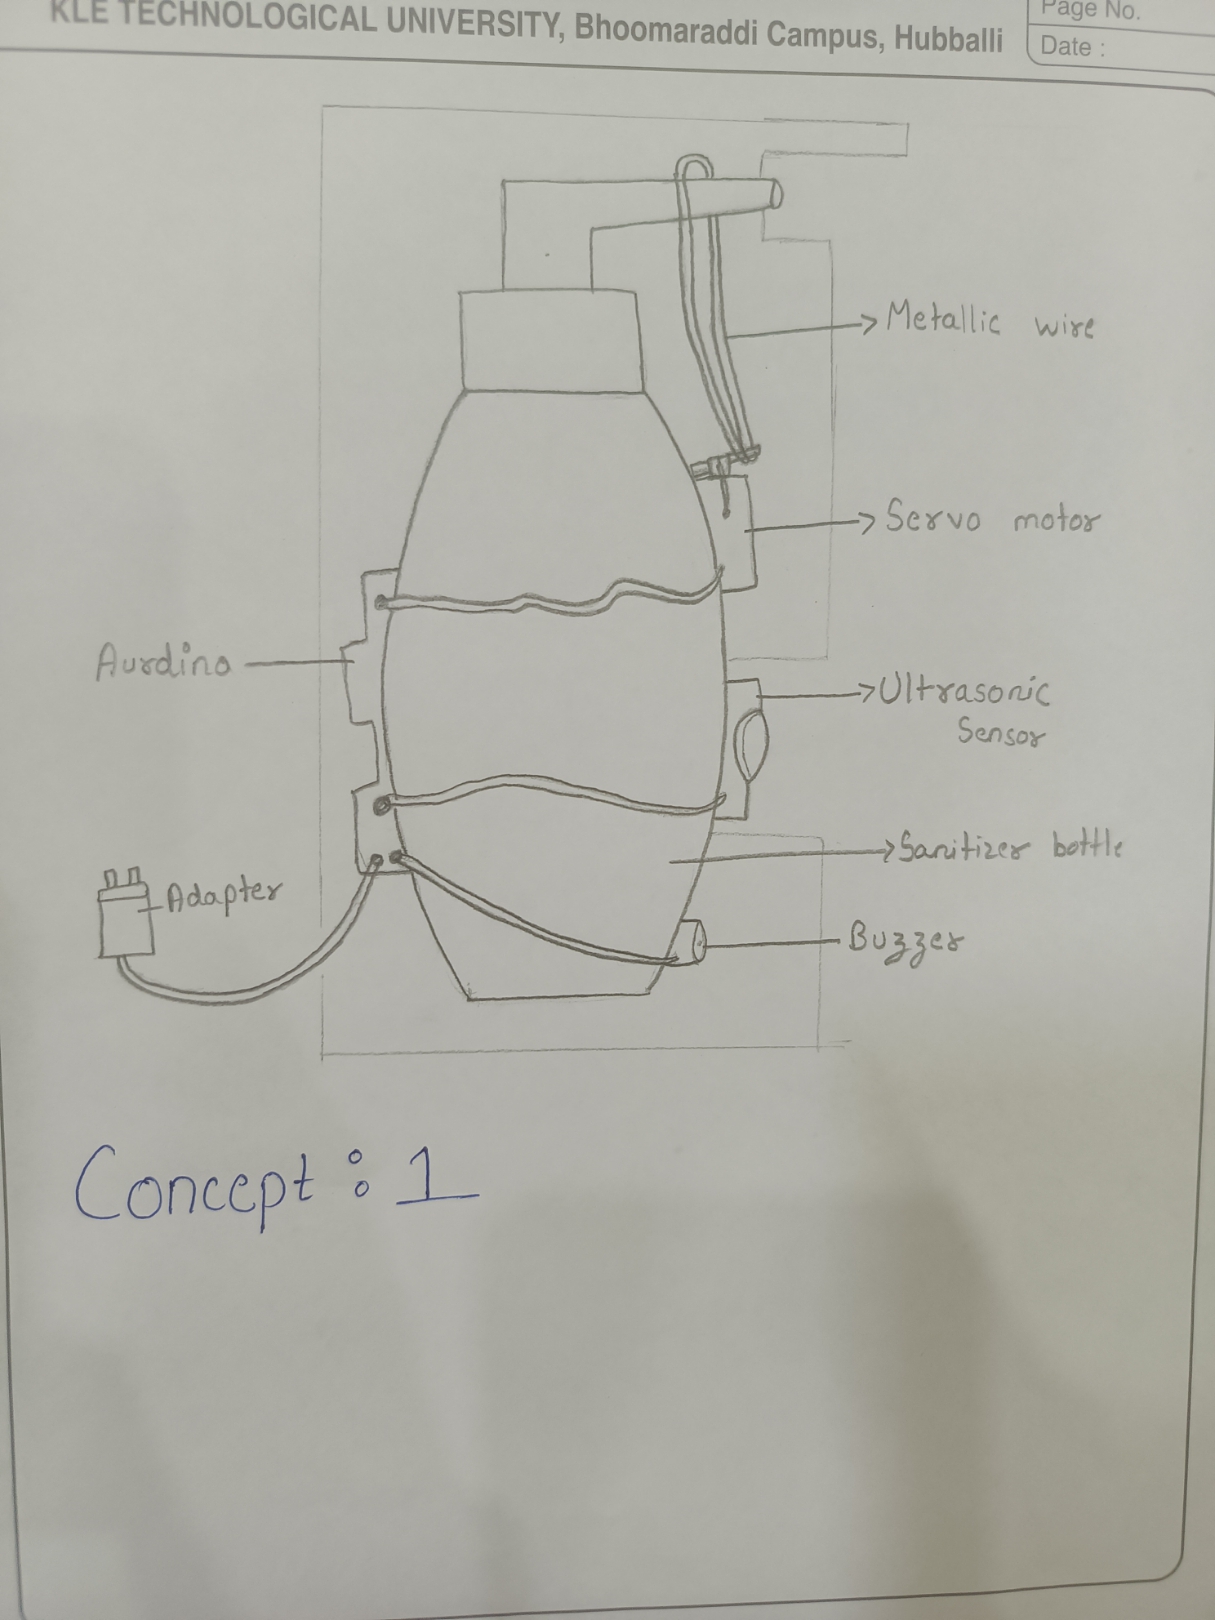 KLE TECHNOLOGICAL UNIVERSITY, Bhoomaraddi Campus, Hubballi
Page No.
Date :
Metallic wire
Servo motor
Aurdino
Ultrasonic
Sensor
Sanitizer bottle
Adapter
Buzzer
Concept : 1